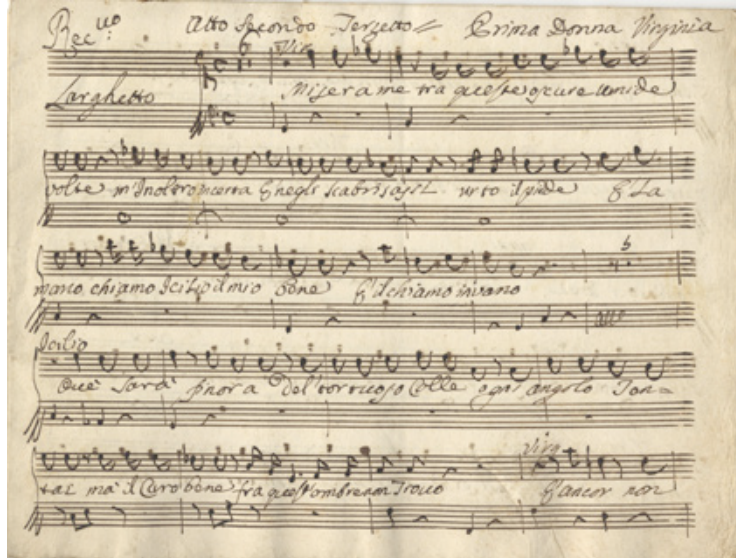 Rec.uo Atto Secondo Terzetto Prima Donna Virginia
Vir
Larghetto Misera me tra queste oscure umide
volte m'Inoltro incerta E negli scabri sassi urto il piede E La
mano chiamo Icilio il mio bene E il chiamo invano
Icilio
Oue sarà finora del tortuoso Colle ogni angolo Ton=
tai ma il Caro bene fra quest'ombre non Trouo E ancor non
Virg